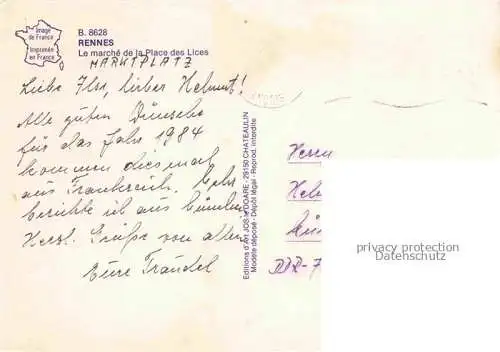 Image
de France
Imprimée
en France
B. 8628
RENNES
Le marché de la Place des Lices
MARKTPLATZ
Liebe Ilse, lieber Helmut!
Alle guten Wünsche
für das Jahr 1984
kommen diesmal
aus Frankreich. Mehr
berichte ich aus
Herzl. Grüße von allen
Eure Traudel
Editions d'Art JOS le DOARE - 29150 CHATEAULIN
Modèle déposé - Dépôt légal - Reprod. interdite
Herrn
Hel
DDR-7
privacy protection
ansichtskartenhandel.de